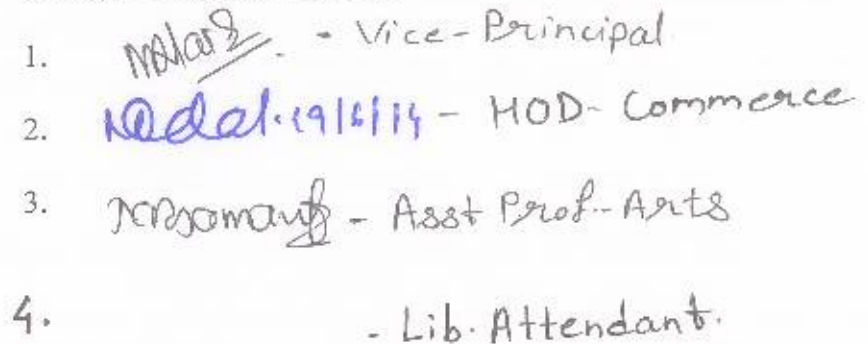 1. - Vice-Principal
2. 19/6/14 - HOD- Commerce
3. - Asst Prof.- Arts
4. - Lib. Attendant.